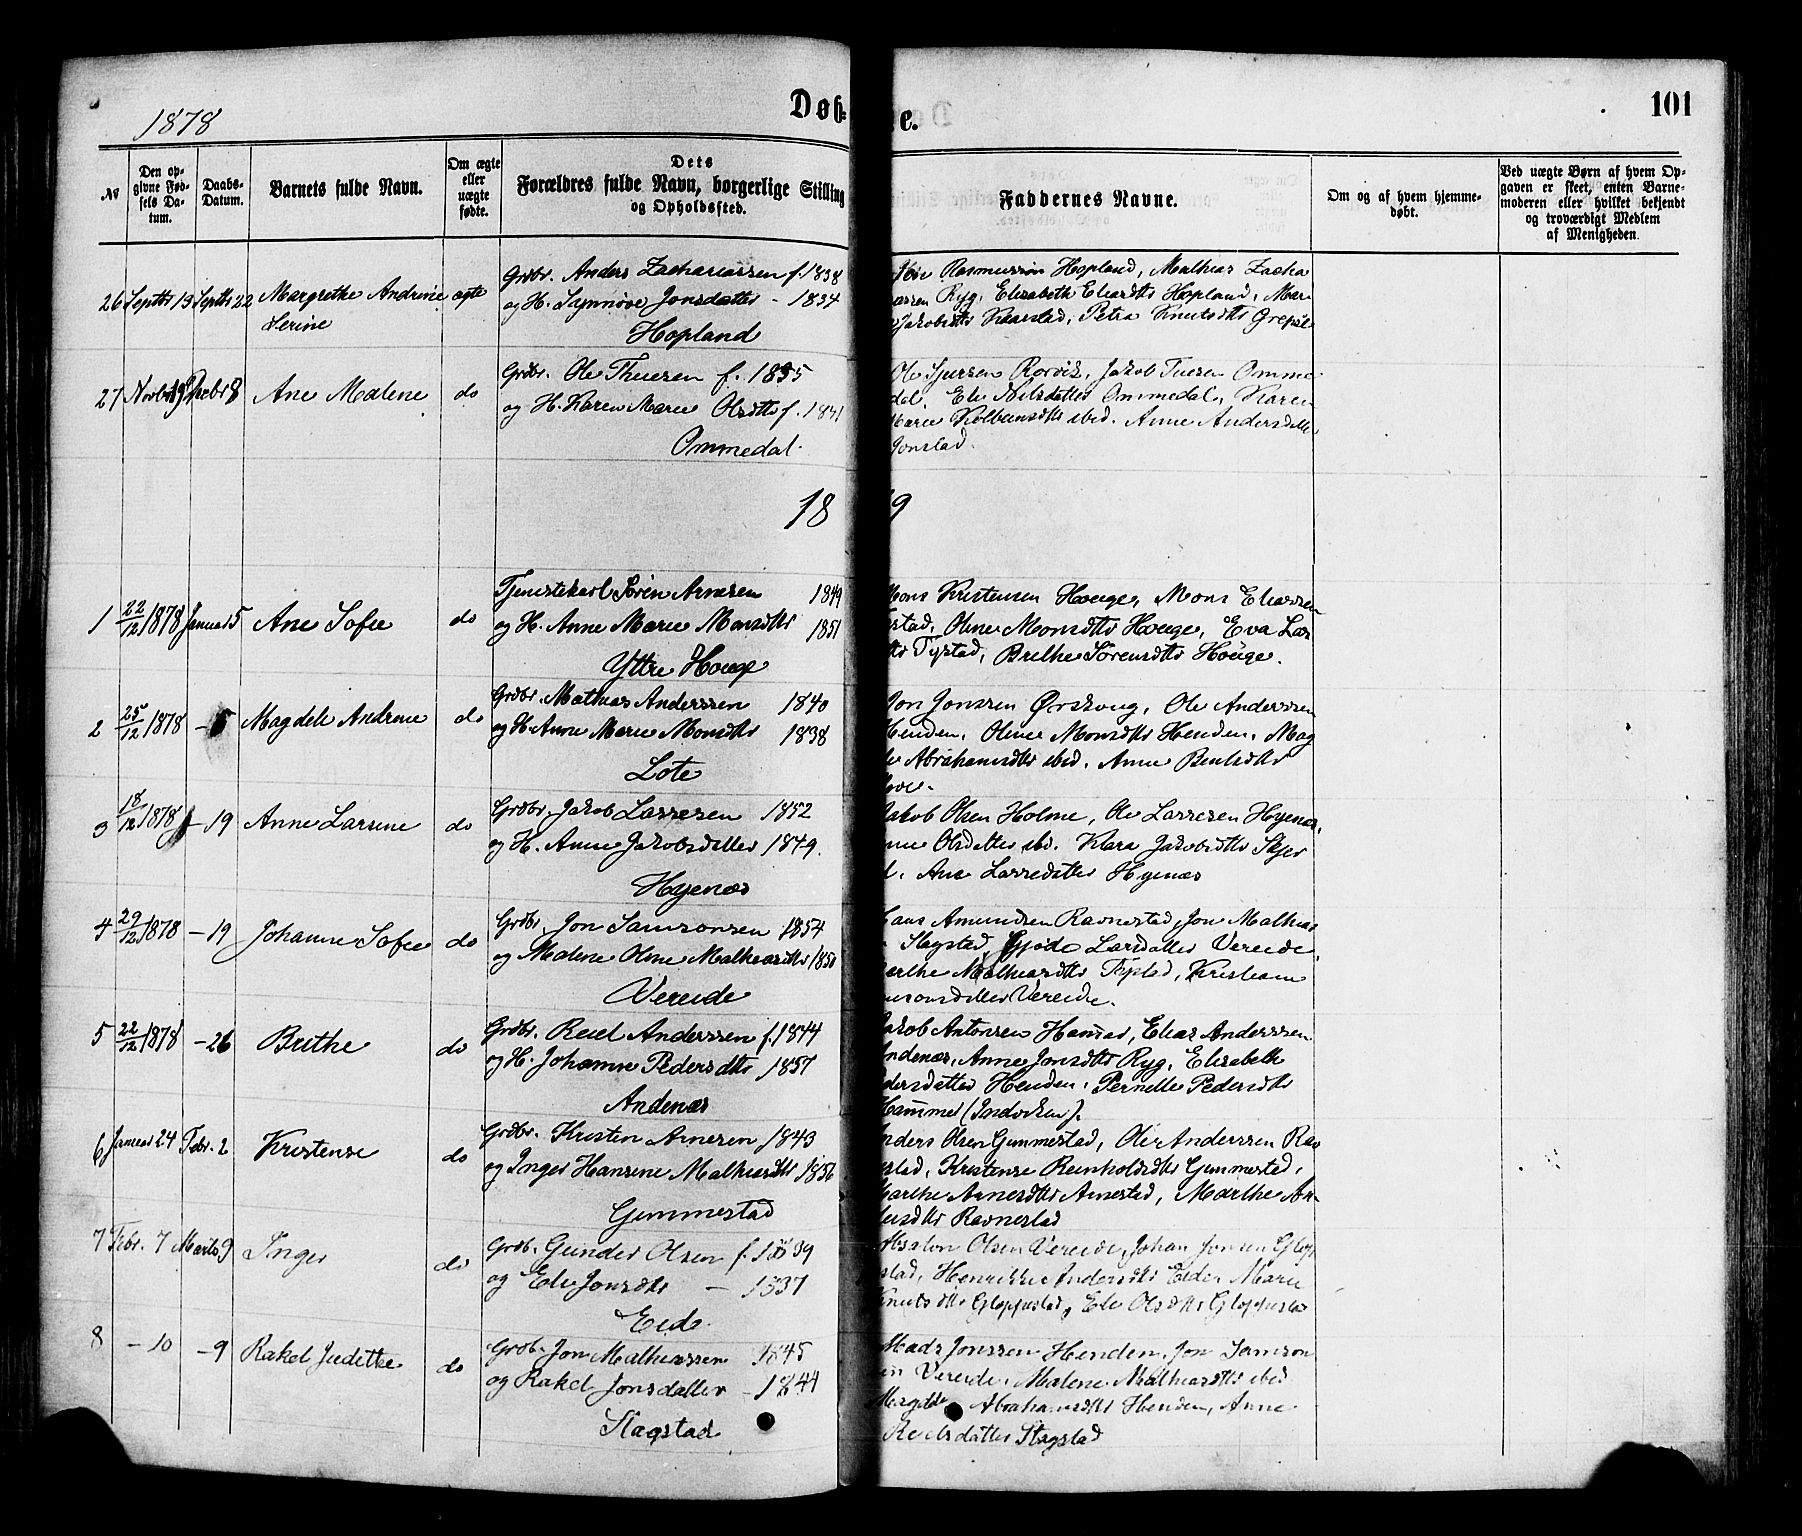 1878
Døb-
e.
101
No
Den opgivne Fødsels Datum.
Daabs-Datum.
Barnets fulde Navn.
Om ægte eller uægte fødte.
Dets Forældres fulde Navn, borgerlige Stilling og Opholdssted.
Faddernes Navne.
Om og af hvem hjemmedøbt.
Ved uægte Børn af hvem Opgaven er skeet, enten Barnemoderen eller hvilket bekjendt og troværdigt Medlem af Menigheden.
26 Septbr 13 Septbr 22 Margrethe Andrine ægte
Serine
Grdbr. Anders Zachariassen f. 1838
og H. Synnøve Jonsdatter - 1834
Hopland
Rasmussen Hopland, Mathias Zacha
assen Ryg, Elisabeth Eliasdtr Hopland, Mar
Jakobsdtr Kaarstad, Petra Knutsdtr
27 Novbr 19 Decbr 8 Ane Malene do
Grdbr. Ole Thuesen f. 1835
og H. Karen Marie Olsdtr f. 1841
Ommedal
Ole Sjursen Rørvik, Jakob Tuesen Omme
dal, Eli Nilsdatter Ommedal, Karen
Marie Kolbeinsdtr ibid. Anne Andersdtr
Jonstad.
18 9
1 22/12 1878 Januar 5 Ane Sofie do
Tjenestekarl Søren Arnesen 1849
og H. Anne Marie Monsdtr 1851
Yttre Houge
Mons Kristensen Houge, Mons Eliassen
stad, Oline Monsdtr Houge, Eva Lar
dtr Tystad, Brithe Sørensdtr Houge.
2 25/12 1878 - 5 Magdeli Andrine do
Grdbr. Mathias Anderssen 1840
og H. Anne Marie Monsdtr 1838
Lote
Jon Jonssen Ørskoug, Ole Anderssen
Henden, Oline Monsdtr Henden, Mag
Abrahamsdtr ibid. Anne Bentsdtr
3 18/12 1878 - 19 Anne Larsine do
Grdbr. Jakob Larsesen 1852
og H. Anne Jakobsdatter 1849.
Hyenæs
Jakob Olsen Holme, Ole Larsesen Hyenæs,
nne Olsdatter ibd. Klara Jakobsdtr Skjer
d. Ane Larsedatter Hyenæs
4 29/12 1878 - 19 Johanne Sofie do
Grdbr. Jon Samsonsen 1854
og Malene Oline Mathiasdtr 1850
Vereide
Amundsen Ravnestad, Jon Mathias
Slagstad, Gjøde Larsdatter Vereide,
arthe Mathiasdtr Tystad, Kristiane
msonsdatter Vereide.
5 22/12 1878 - 26 Brithe do
Grdbr. Reiel Anderssen f. 1844
og H. Johanne Pedersdtr 1857
Andenæs
Jakob Antonsen Hammer, Elias Anderssen
Andenæs, Anne Jonsdtr Ryg, Elisabeth
edersdatter Henden, Pernelle Pedersdtr
Hammer (Indviken).
6 Januar 24 Febr. 2 Kristense do
Grdbr. Kristen Arnesen 1843
og Inger Hansine Mathiasdtr 1856
Gemmestad
Anders Olsen Gemmestad, Ole Anderssen Rav
estad, Kristense Reinholdsdtr Gemmestad,
Marthe Arnesdtr Arnestad, Marthe An
dersdtr Ravnestad
7 Febr. 7 Marts 9 Inger do
Grdb. Gunder Olsen f. 1839
og Eli Jonsdtr - 1837
Eide
Absalon Olsen Vereide, Johan Jonsen Glop
estad, Henrikke Andersdtr Eide, Marie
Knutsdtr Gloppestad, Eli Olsdtr Gloppestad
8 - 10 - 9 Rakel Judithe do
Grdb. Jon Mathiassen 1845
og Rakel Jonsdatter - 1844
Slagstad
Mads Jonssen Henden, Jon Samson
en Vereide, Malene Mathiasdtr ibid
Abrahamsdtr Henden, Anne
Reielsdatter Slagstad